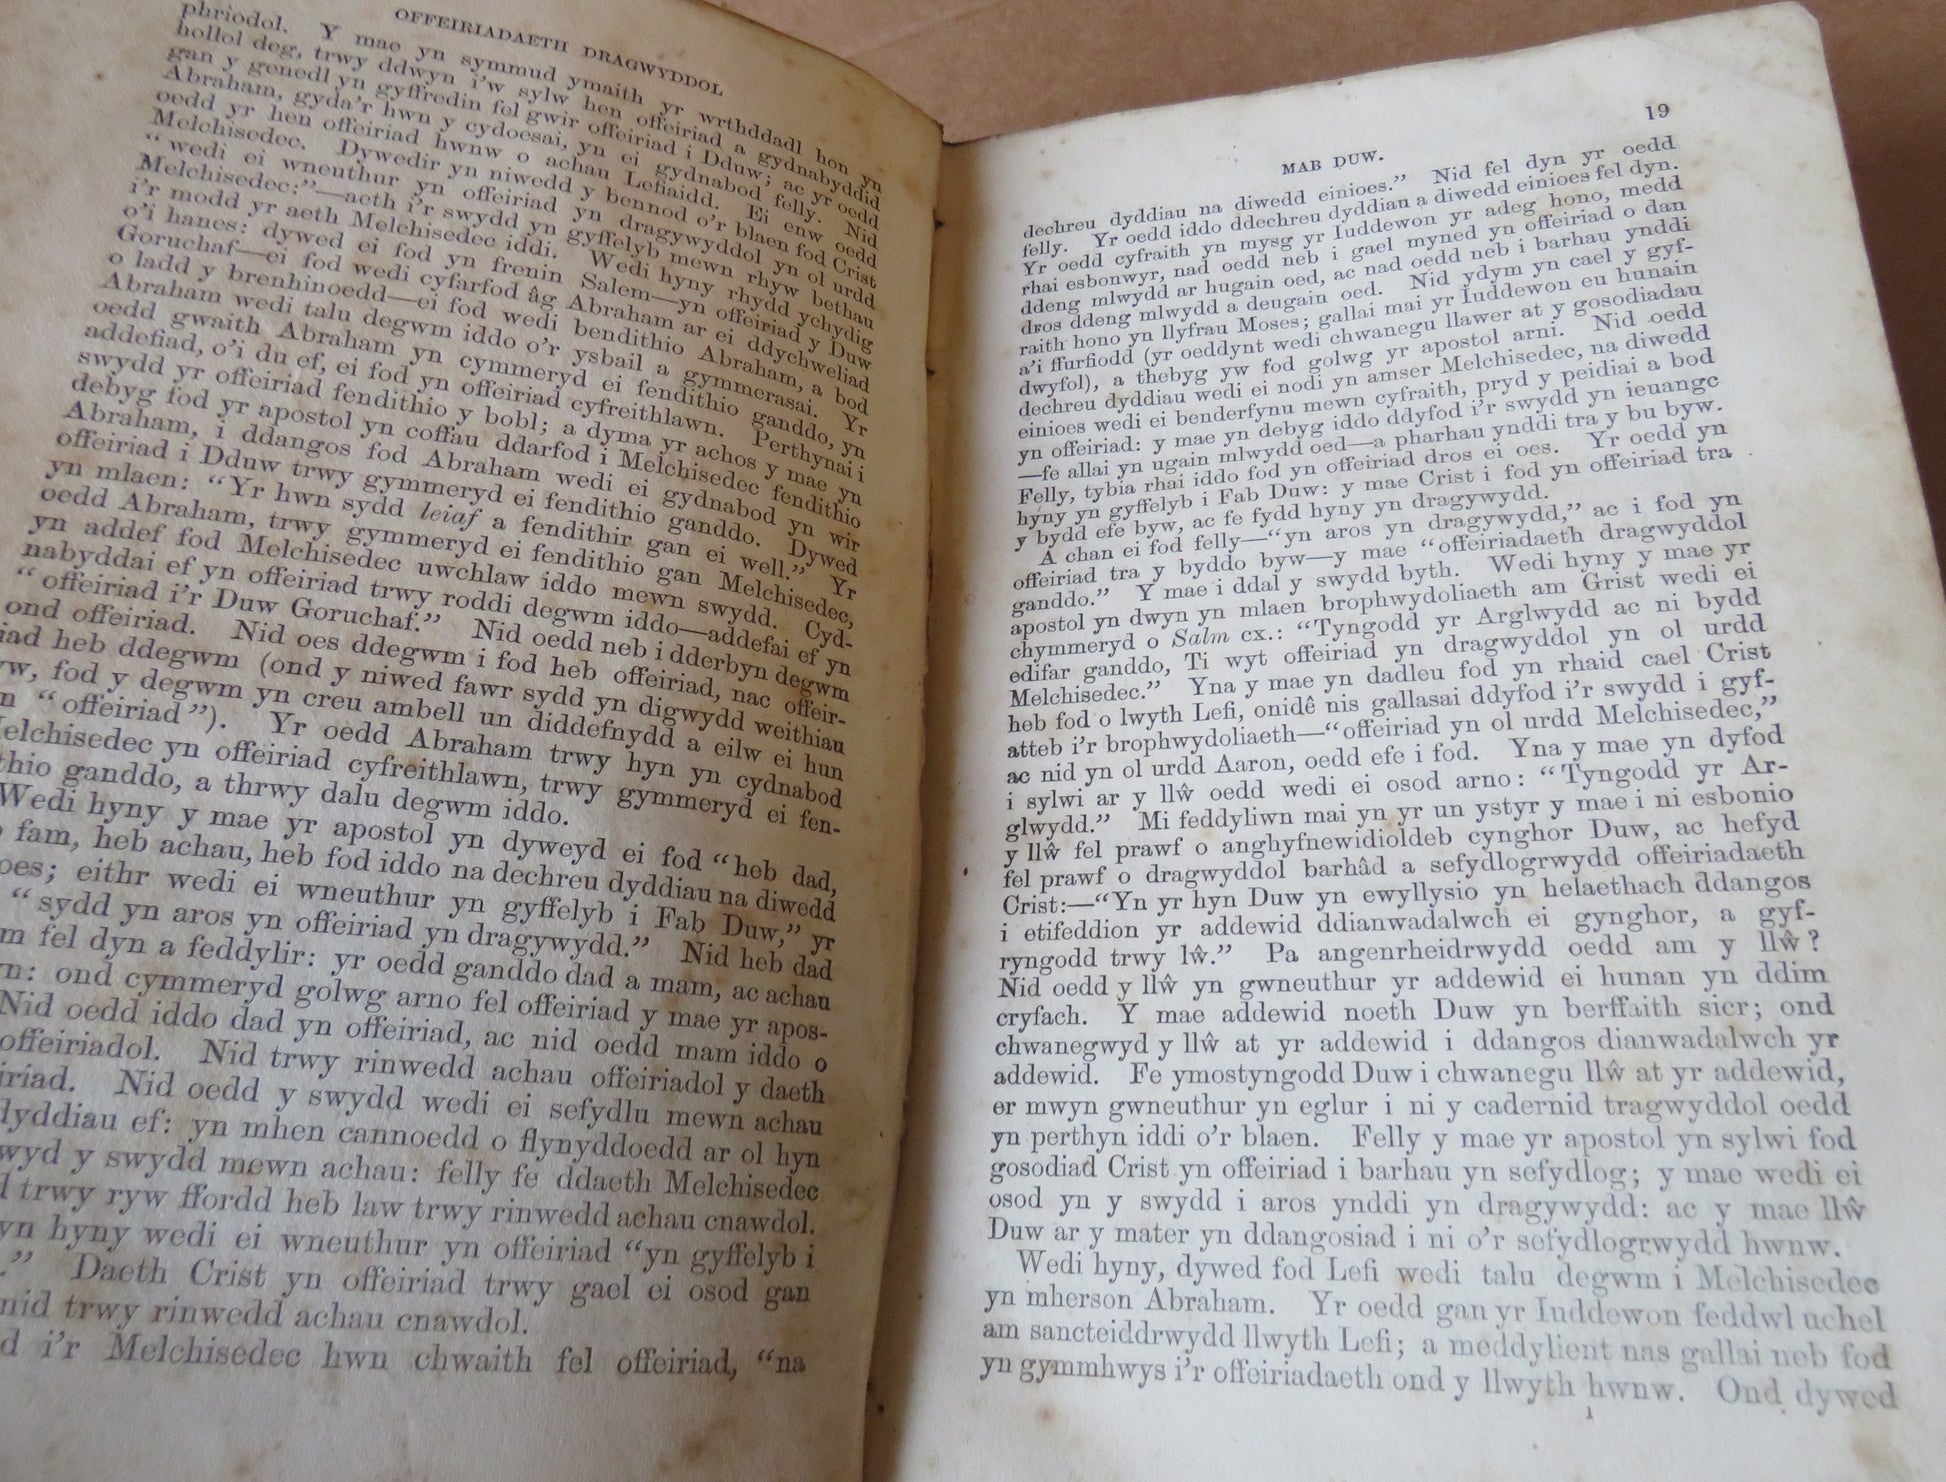 OFFEIRIADAETH DRAGWYDDOL
phriodol. Y mae yn symmud ymaith yr wrthddadl hon yn
hollol deg, trwy ddwyn i'w sylw hen offeiriad a gydnabyddid
gan y genedl yn gyffredin fel gwir offeiriad i Dduw; ac yr oedd
Abraham, gyda'r hwn y cydoesai, yn ei gydnabod felly. Nid
oedd yr hen offeiriad hwnw o achau Lefiaidd. Ei enw oedd
Melchisedec. Dywedir yn niwedd y bennod o'r blaen fod Crist
"wedi ei wneuthur yn offeiriad yn dragywyddol yn ol urdd
Melchisedec:"—aeth i'r swydd yn gyffelyb mewn rhyw bethau
i'r modd yr aeth Melchisedec iddi. Wedi hyny rhydd ychydig
o'i hanes: dywed ei fod yn frenin Salem—yn offeiriad y Duw
Goruchaf—ei fod wedi cyfarfod âg Abraham ar ei ddychweliad
o ladd y brenhinoedd—ei fod wedi bendithio Abraham, a bod
Abraham wedi talu degwm iddo o'r ysbail a gymmerasai. Yr
oedd gwaith Abraham yn cymmeryd ei fendithio ganddo, yn
addefiad, o'i du ef, ei fod yn offeiriad cyfreithlawn. Perthynai i
swydd yr offeiriad fendithio y bobl; a dyma yr achos y mae yn
debyg fod yr apostol yn coffau ddarfod i Melchisedec fendithio
Abraham, i ddangos fod Abraham wedi ei gydnabod yn wir
offeiriad i Dduw trwy gymmeryd ei fendithio ganddo. Dywed
yn mlaen: "Yr hwn sydd leiaf a fendithir gan ei well." Yr
oedd Abraham, trwy gymmeryd ei fendithio gan Melchisedec,
yn addef fod Melchisedec uwchlaw iddo mewn swydd. Cyd-
nabyddai ef yn offeiriad trwy roddi degwm iddo—addefai ef yn
"offeiriad i'r Duw Goruchaf." Nid oedd neb i dderbyn degwm
ond offeiriad. Nid oes ddegwm i fod heb offeiriad, nac offeir-
iad heb ddegwm (ond y niwed fawr sydd yn digwydd weithiau
yw, fod y degwm yn creu ambell un diddefnydd a eilw ei hun
n "offeiriad"). Yr oedd Abraham trwy hyn yn cydnabod
elchisedec yn offeiriad cyfreithlawn, trwy gymmeryd ei fen-
thio ganddo, a thrwy dalu degwm iddo.
Wedi hyny y mae yr apostol yn dyweyd ei fod "heb dad,
fam, heb achau, heb fod iddo na dechreu dyddiau na diwedd
oes; eithr wedi ei wneuthur yn gyffelyb i Fab Duw," yr
"sydd yn aros yn offeiriad yn dragywydd." Nid heb dad
m fel dyn a feddylir: yr oedd ganddo dad a mam, ac achau
n: ond cymmeryd golwg arno fel offeiriad y mae yr apos-
Nid oedd iddo dad yn offeiriad, ac nid oedd mam iddo o
offeiriadol. Nid trwy rinwedd achau offeiriadol y daeth
iriad. Nid oedd y swydd wedi ei sefydlu mewn achau
dyddiau ef: yn mhen cannoedd o flynyddoedd ar ol hyn
wyd y swydd mewn achau: felly fe ddaeth Melchisedec
d trwy ryw ffordd heb law trwy rinwedd achau cnawdol.
yn hyny wedi ei wneuthur yn offeiriad "yn gyffelyb i
." Daeth Crist yn offeiriad trwy gael ei osod gan
nid trwy rinwedd achau cnawdol.
d i'r Melchisedec hwn chwaith fel offeiriad, "na
19
MAB DUW.
dechreu dyddiau na diwedd einioes." Nid fel dyn yr oedd
felly. Yr oedd iddo ddechreu dyddiau a diwedd einioes fel dyn.
Yr oedd cyfraith yn mysg yr Iuddewon yr adeg hono, medd
rhai esbonwyr, nad oedd neb i gael myned yn offeiriad o dan
ddeng mlwydd ar hugain oed, ac nad oedd neb i barhau ynddi
dros ddeng mlwydd a deugain oed. Nid ydym yn cael y gyf-
raith hono yn llyfrau Moses; gallai mai yr Iuddewon eu hunain
a'i ffurfiodd (yr oeddynt wedi chwanegu llawer at y gosodiadau
dwyfol), a thebyg yw fod golwg yr apostol arni. Nid oedd
dechreu dyddiau wedi ei nodi yn amser Melchisedec, na diwedd
einioes wedi ei benderfynu mewn cyfraith, pryd y peidiai a bod
yn offeiriad: y mae yn debyg iddo ddyfod i'r swydd yn ieuangc
—fe allai yn ugain mlwydd oed—a pharhau ynddi tra y bu byw.
Felly, tybia rhai iddo fod yn offeiriad dros ei oes. Yr oedd yn
hyny yn gyffelyb i Fab Duw: y mae Crist i fod yn offeiriad tra
y bydd efe byw, ac fe fydd hyny yn dragywydd.
A chan ei fod felly—"yn aros yn dragywydd," ac i fod yn
offeiriad tra y byddo byw—y mae "offeiriadaeth dragwyddol
ganddo." Y mae i ddal y swydd byth. Wedi hyny y mae yr
apostol yn dwyn yn mlaen brophwydoliaeth am Grist wedi ei
chymmeryd o Salm cx.: "Tyngodd yr Arglwydd ac ni bydd
edifar ganddo, Ti wyt offeiriad yn dragwyddol yn ol urdd
Melchisedec." Yna y mae yn dadleu fod yn rhaid cael Crist
heb fod o lwyth Lefi, onidê nis gallasai ddyfod i'r swydd i gyf-
atteb i'r brophwydoliaeth—"offeiriad yn ol urdd Melchisedec,"
ac nid yn ol urdd Aaron, oedd efe i fod. Yna y mae yn dyfod
i sylwi ar y llŵ oedd wedi ei osod arno: "Tyngodd yr Ar-
glwydd." Mi feddyliwn mai yn yr un ystyr y mae i ni esbonio
y llŵ fel prawf o anghyfnewidioldeb cynghor Duw, ac hefyd
fel prawf o dragwyddol barhâd a sefydlogrwydd offeiriadaeth
Crist:—"Yn yr hyn Duw yn ewyllysio yn helaethach ddangos
i etifeddion yr addewid ddianwadalwch ei gynghor, a gyf-
ryngodd trwy lŵ." Pa angenrheidrwydd oedd am y llŵ?
Nid oedd y llŵ yn gwneuthur yr addewid ei hunan yn ddim
cryfach. Y mae addewid noeth Duw yn berffaith sicr; ond
chwanegwyd y llŵ at yr addewid i ddangos dianwadalwch yr
addewid. Fe ymostyngodd Duw i chwanegu llŵ at yr addewid,
er mwyn gwneuthur yn eglur i ni y cadernid tragwyddol oedd
yn perthyn iddi o'r blaen. Felly y mae yr apostol yn sylwi fod
gosodiad Crist yn offeiriad i barhau yn sefydlog; y mae wedi ei
osod yn y swydd i aros ynddi yn dragywydd: ac y mae llŵ
Duw ar y mater yn ddangosiad i ni o'r sefydlogrwydd hwnw.
Wedi hyny, dywed fod Lefi wedi talu degwm i Melchisedec
yn mherson Abraham. Yr oedd gan yr Iuddewon feddwl uchel
am sancteiddrwydd llwyth Lefi; a meddylient nas gallai neb fod
yn gymmhwys i'r offeiriadaeth ond y llwyth hwnw. Ond dywed